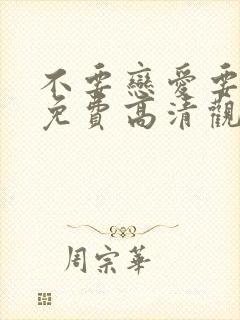 不要戀愛要
免費高清觀
周宗華